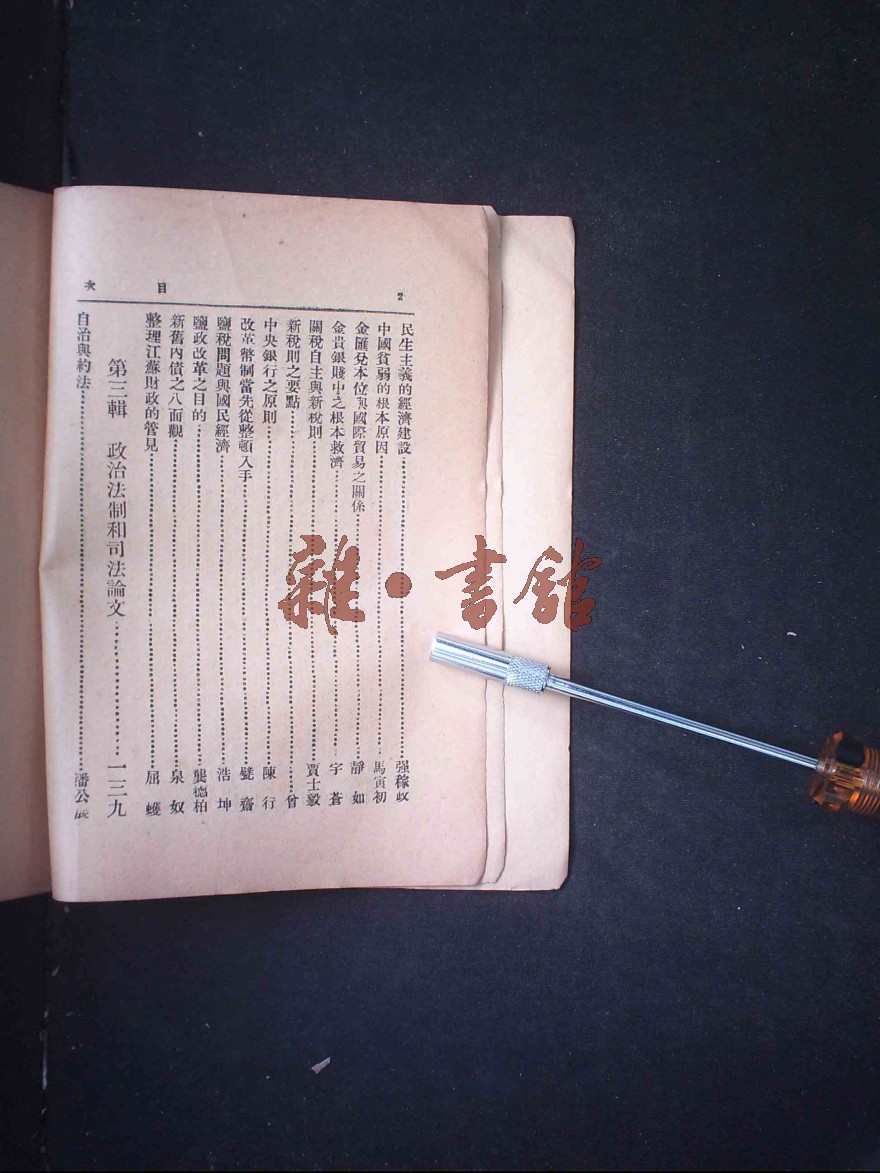 目次
民生主義的經濟建設 强稼
中國貧弱的根本原因 馬寅初
金匯兌本位與國際貿易之關係 靜如
金貴銀賤中之根本救濟 宇蒼
關稅自主與新稅則 賈士毅
新稅則之要點 曾
中央銀行之原則 陳行
改革幣制當先從整頓入手 甓齋
鹽稅問題與國民經濟 浩坤
鹽政改革之目的 龔德柏
新舊內債之八面觀 泉奴
整理江蘇財政的管見 屈蠖
第三輯 政治法制和司法論文 一三九
自治與約法 潘公展
雜·書館